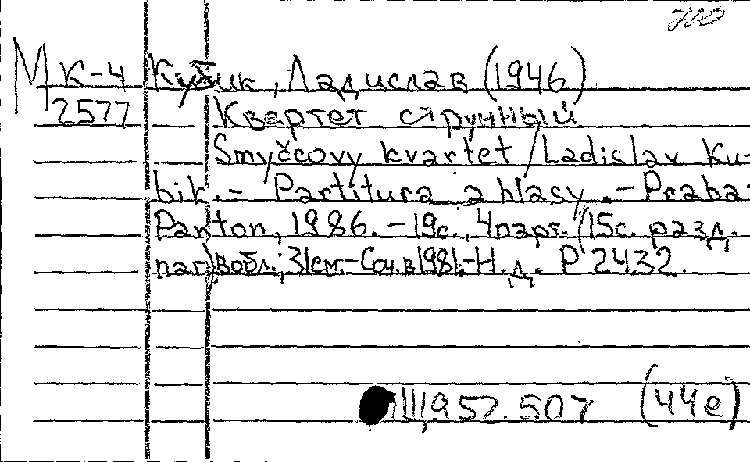 М К-4 Кубик, Ладислав (1946)
2577 Квартет струнный
Smyčcovy kvartet / Ladislav Ku-
bik. – Partitura a hlasy. – Praha:
Panton, 1986. – 19с., 4 парт. (15с. разд.
паг.) в обл.; 31см. – Соч. в 1981. – Н. д. P 2432.
957.507 (44е)